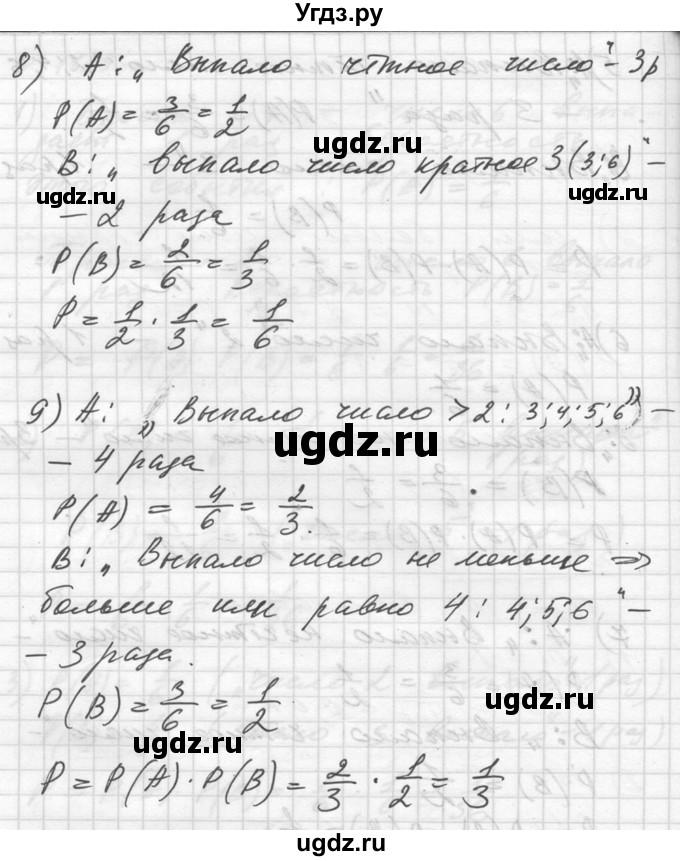 Угдз.ру
8) А: „ Выпало чётное число“ - 3р
P(A) = 3/6 = 1/2
ugdz.ru
B: „ выпало число кратное 3 (3; 6)“ -
ugdz.ru
ugdz.ru
- 2 раза
P(B) = 2/6 = 1/3
ugdz.ru
P = 1/2 · 1/3 = 1/6
9) А: „ Выпало число > 2: 3; 4; 5; 6“) -
ugdz.ru
- 4 раза
P(A) = 4/6 = 2/3.
ugdz.ru
B: „ Выпало число не меньше ⇒
больше или равно 4: 4; 5; 6“ -
- 3 раза.
P(B) = 3/6 = 1/2
ugdz.ru
ugdz.ru
P = P(A) · P(B) = 2/3 · 1/2 = 1/3
ugdz.ru